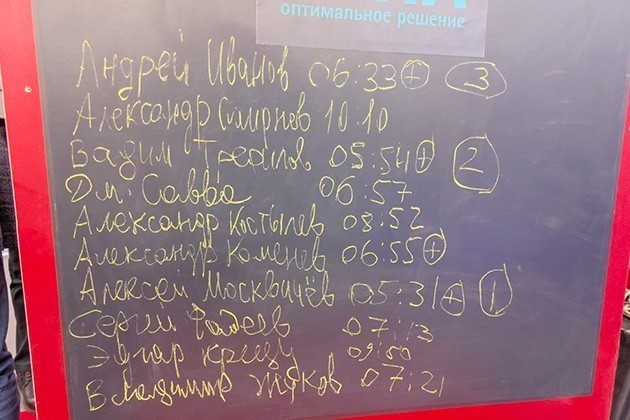 оптимальное решение
Андрей Иванов 06:33 + 3
Александр Смирнов 10:10
Вадим Трефилов 05:54 + 2
Дм. Савва 06:57
Александр Костылев 08:52
Александр Коменев 06:55 +
Алексей Москвичёв 05:31 + 1
Сергей Фадеев 07:13
Эдгар 09:50
Владимир Жуков 07:21